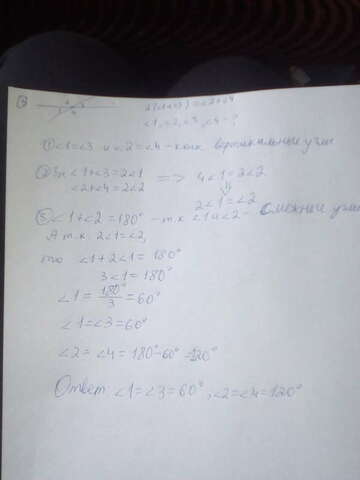 2(∠1+∠3) = ∠2+∠4
∠1, ∠2, ∠3, ∠4 - ?
① ∠1=∠3 и ∠2=∠4 - как вертикальные углы
② ∠1+∠3 = 2∠1 => 4∠1 = 2∠2
∠2+∠4 = 2∠2
2∠1 = ∠2
③ ∠1+∠2 = 180° - т.к ∠1 и ∠2 - смежные углы
А т.к. 2∠1=∠2,
то ∠1+2∠1 = 180°
3∠1 = 180°
∠1 = 180°/3 = 60°
∠1=∠3=60°
∠2 = ∠4 = 180°-60° =120°
Ответ: ∠1=∠3=60°, ∠2=∠4=120°